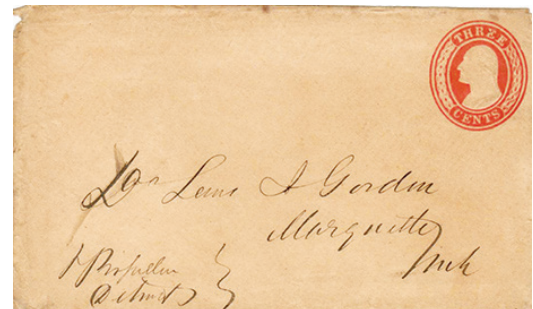 THREE
CENTS
Dr Lewis J Gordon
Marquette
Mich
Propeller
Detroit